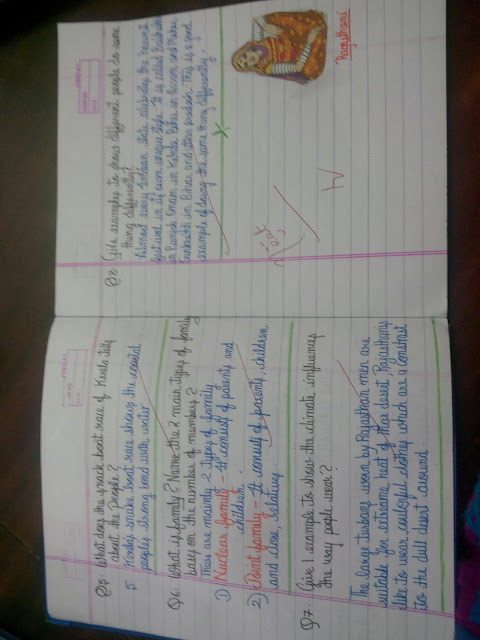 Q5 What does the snack boat race of Kerala tell
about the People?
5. Kerala's snacke boat race shows the coastal
people's strong bond with water
Q6 What is family? Name the 2 main types of family
basis on the number of members?
There are mainly 2 types of family
1) Nuclear family - It consist of parents and
children.
2) Joint family - It consists of parents, children
and close, relatives
Q7 Give 1 example to show the climate influences
the way people wear?
The large turbans worn by Rajasthan men are
suitable for extreme heat of thar desert Rajasthanis
like to wear coulorful clothes which are a constrast
to the dull desert around.
Q8 Give examples to shows different people do same
thing differently?
Almost every Indian state celebrates the harvest
festival in its own unique style. It is called Baisakhi
in Punjab Onam in Kerala Bihu in Assam and Makar
Sankranti in Bihar and Uttar pradesh. This is a good
example of doing the same thing differently.
Rajasthani